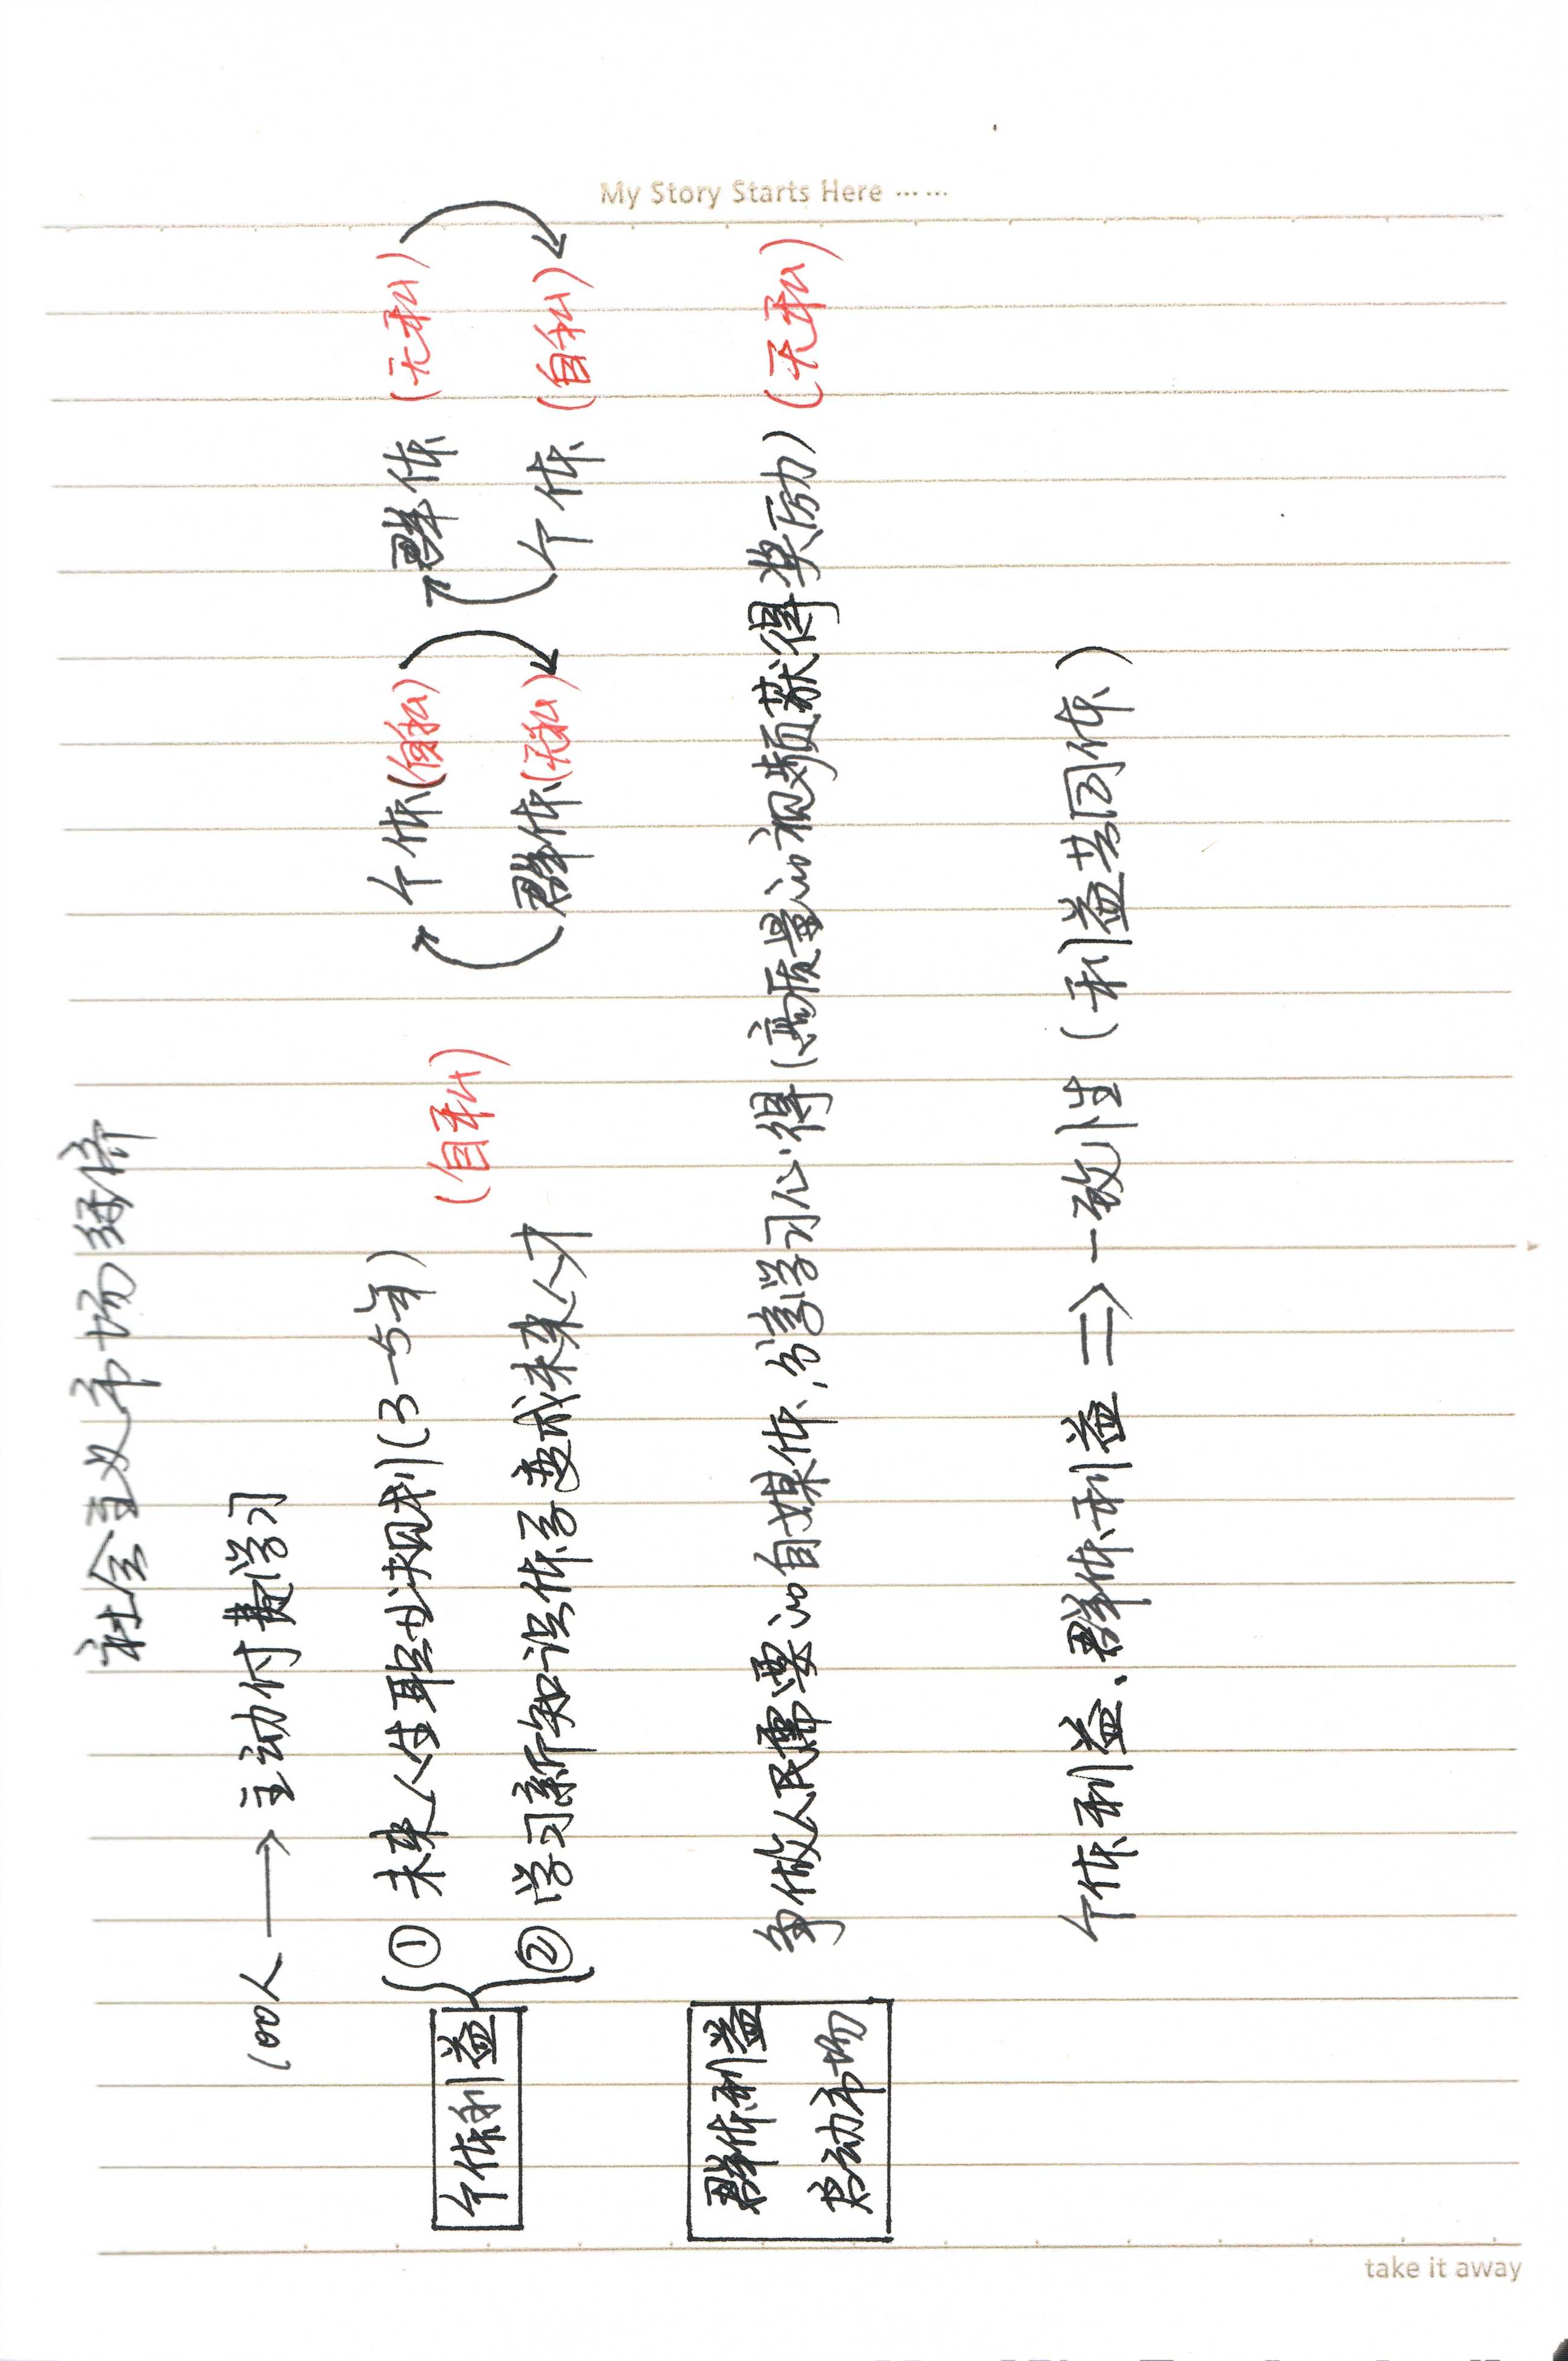 My Story Starts Here ……
社会主义市场经济
100人 → 主动付费学习
个体利益
① 未来人付职业规划(3—5年)
② 学习新知识体系变成未来人才
(自私)
个体(自私)
群体(无私)
群体 (无私)
个体 (自私)
群体利益
启动市场
争做人民需要的自媒体、分享学习心得(高质量的视频获得奖励) (无私)
个体利益、群体利益 => 一致性 (利益共同体)
take it away